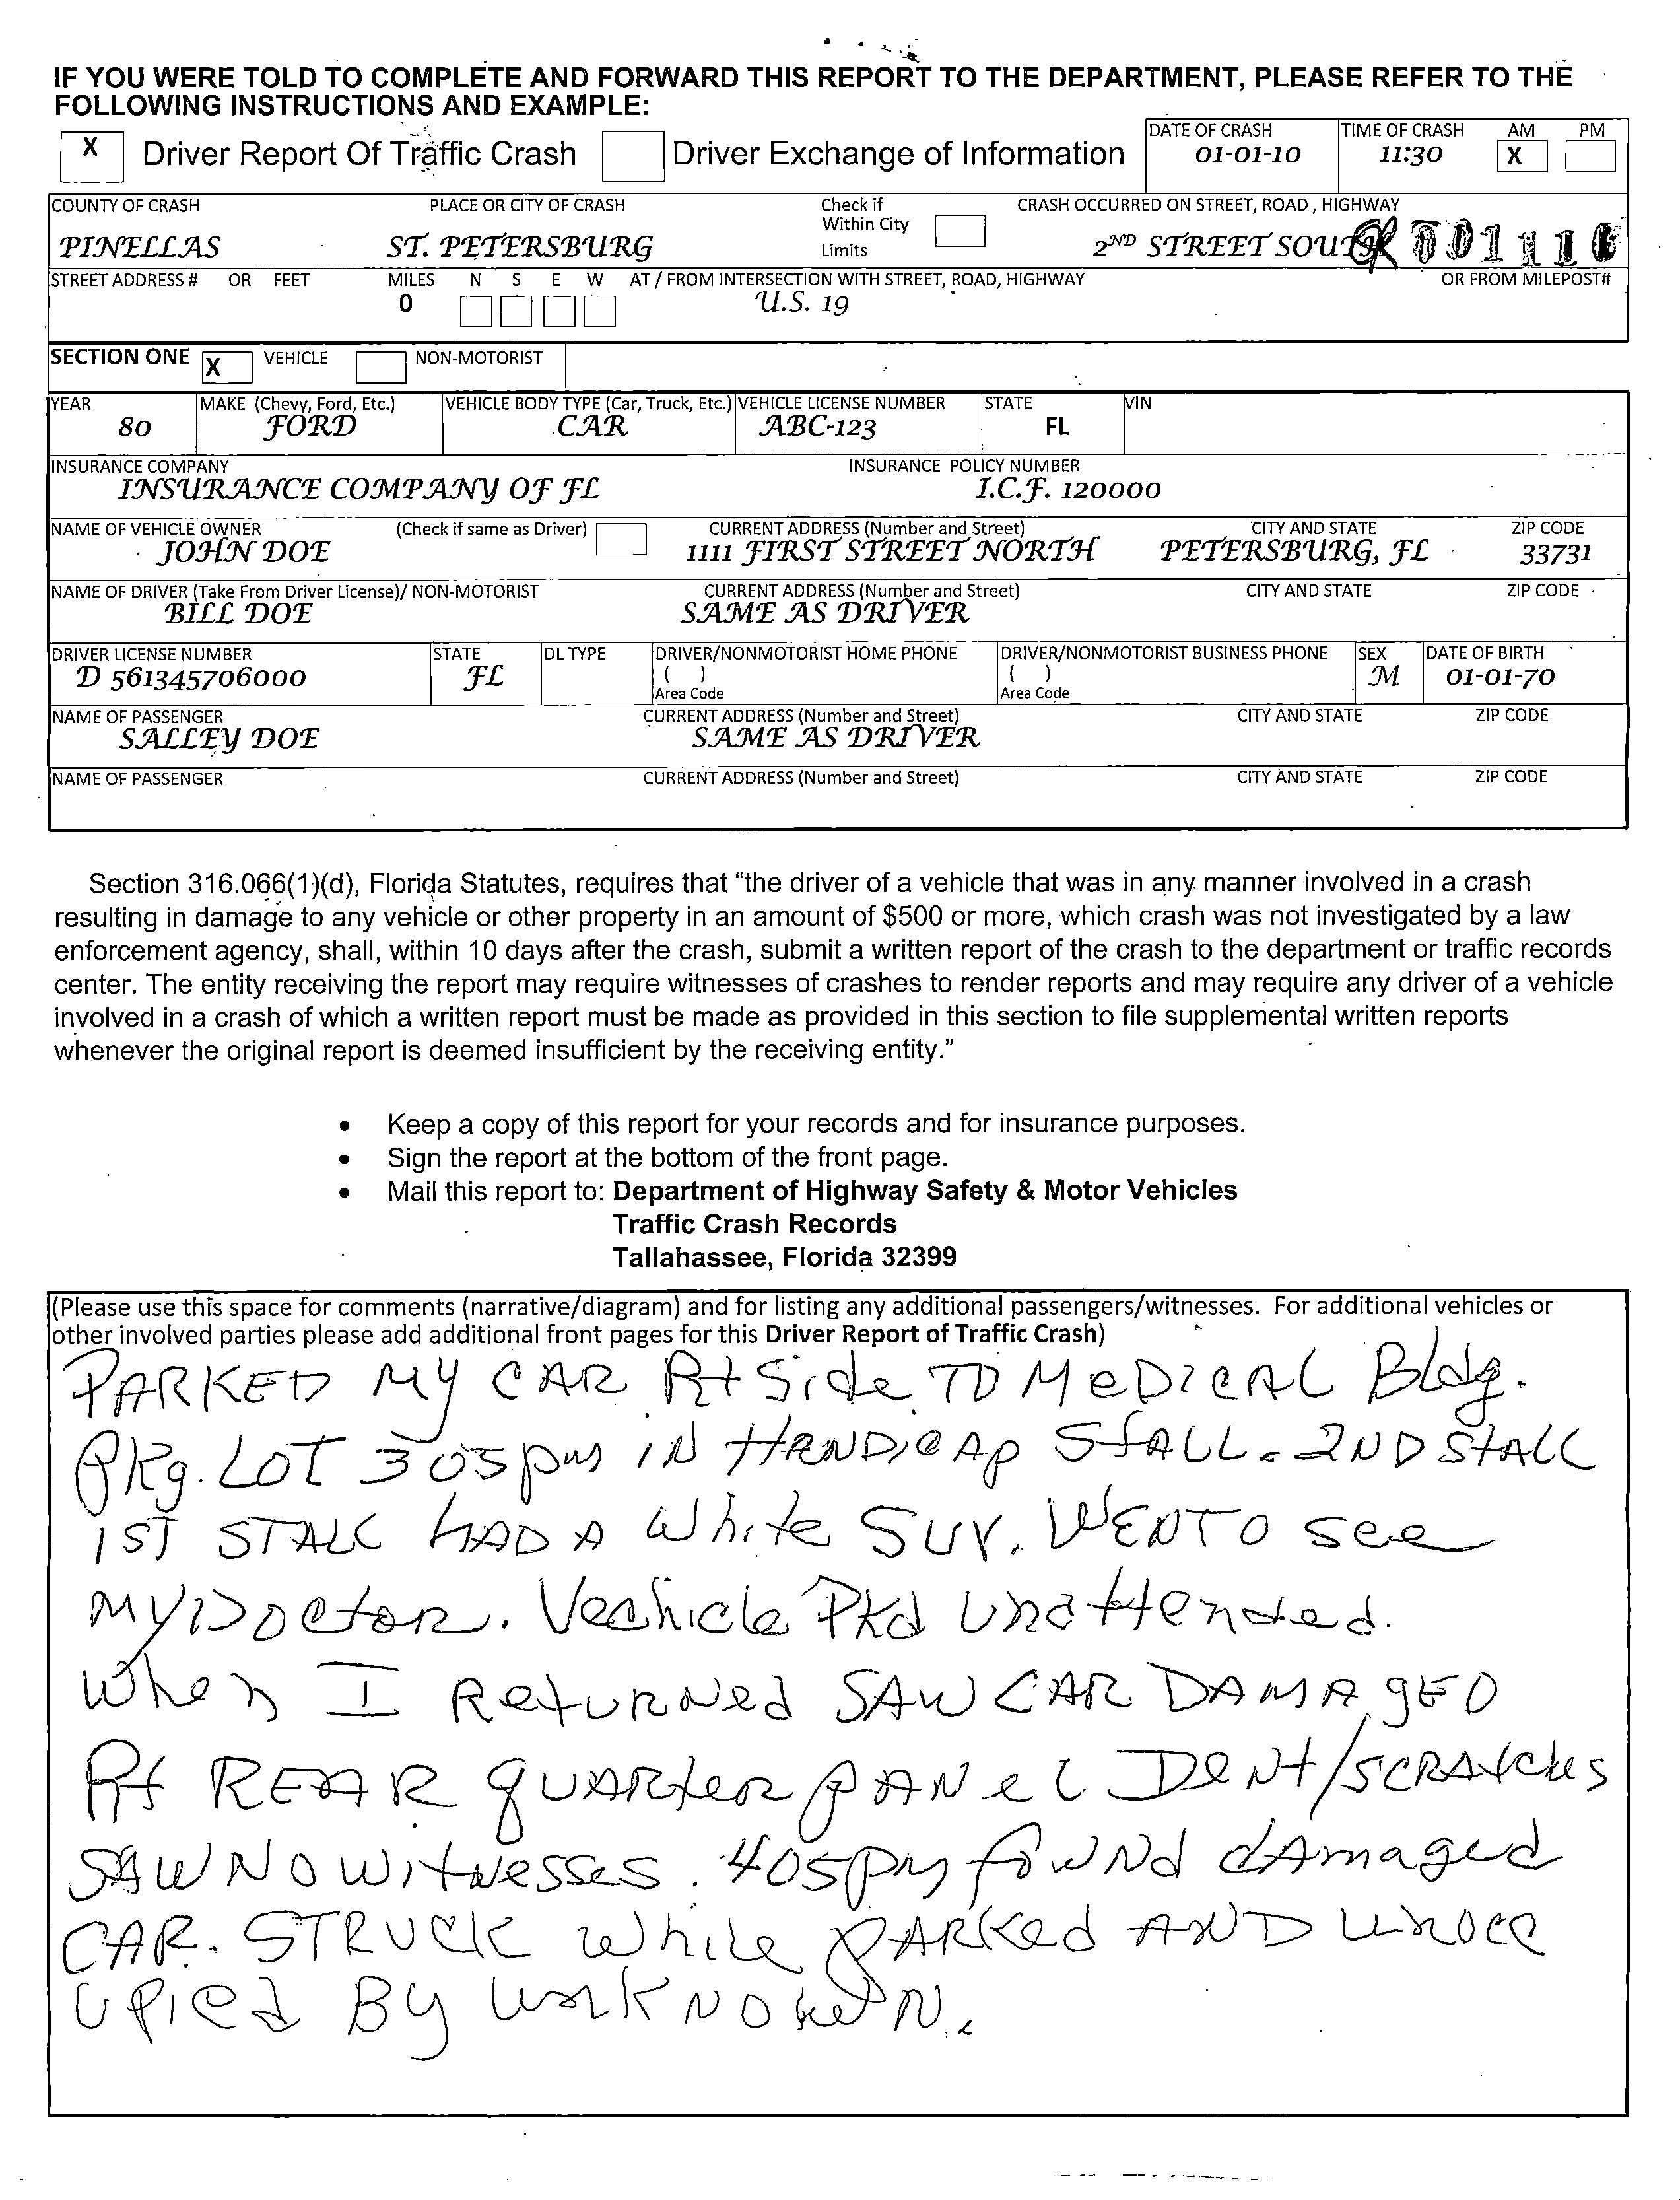 IF YOU WERE TOLD TO COMPLETE AND FORWARD THIS REPORT TO THE DEPARTMENT, PLEASE REFER TO THE
FOLLOWING INSTRUCTIONS AND EXAMPLE:
X Driver Report Of Traffic Crash Driver Exchange of Information
DATE OF CRASH TIME OF CRASH AM PM
01-01-10 11:30 X
COUNTY OF CRASH PLACE OR CITY OF CRASH Check if Within City Limits CRASH OCCURRED ON STREET, ROAD , HIGHWAY
PINELLAS ST. PETERSBURG 2ND STREET SOU
STREET ADDRESS # OR FEET MILES N S E W AT / FROM INTERSECTION WITH STREET, ROAD, HIGHWAY OR FROM MILEPOST#
0 U.S. 19
SECTION ONE X VEHICLE NON-MOTORIST
YEAR MAKE (Chevy, Ford, Etc.) VEHICLE BODY TYPE (Car, Truck, Etc.) VEHICLE LICENSE NUMBER STATE VIN
80 FORD CAR ABC-123 FL
INSURANCE COMPANY INSURANCE POLICY NUMBER
INSURANCE COMPANY OF FL I.C.F. 120000
NAME OF VEHICLE OWNER (Check if same as Driver) CURRENT ADDRESS (Number and Street) CITY AND STATE ZIP CODE
JOHN DOE 1111 FIRST STREET NORTH PETERSBURG, FL 33731
NAME OF DRIVER (Take From Driver License)/ NON-MOTORIST CURRENT ADDRESS (Number and Street) CITY AND STATE ZIP CODE
BILL DOE SAME AS DRIVER
DRIVER LICENSE NUMBER STATE DL TYPE DRIVER/NONMOTORIST HOME PHONE DRIVER/NONMOTORIST BUSINESS PHONE SEX DATE OF BIRTH
D 561345706000 FL ( ) ( ) M 01-01-70
Area Code Area Code
NAME OF PASSENGER CURRENT ADDRESS (Number and Street) CITY AND STATE ZIP CODE
SALLEY DOE SAME AS DRIVER
NAME OF PASSENGER CURRENT ADDRESS (Number and Street) CITY AND STATE ZIP CODE
Section 316.066(1)(d), Florida Statutes, requires that “the driver of a vehicle that was in any manner involved in a crash
resulting in damage to any vehicle or other property in an amount of $500 or more, which crash was not investigated by a law
enforcement agency, shall, within 10 days after the crash, submit a written report of the crash to the department or traffic records
center. The entity receiving the report may require witnesses of crashes to render reports and may require any driver of a vehicle
involved in a crash of which a written report must be made as provided in this section to file supplemental written reports
whenever the original report is deemed insufficient by the receiving entity.”
• Keep a copy of this report for your records and for insurance purposes.
• Sign the report at the bottom of the front page.
• Mail this report to: Department of Highway Safety & Motor Vehicles
Traffic Crash Records
Tallahassee, Florida 32399
(Please use this space for comments (narrative/diagram) and for listing any additional passengers/witnesses. For additional vehicles or
other involved parties please add additional front pages for this Driver Report of Traffic Crash)
PARKED MY CAR Rt Side TO MeDICAL Bldg.
Pkg. LOT 305pm IN HANDICAp STALL. 2ND STALL
1ST STALL HAD A White SUV. WENT TO see
MY Doctor. Veahicle Pkd Unattended.
When I Returned SAW CAR DAMAgED
Rt REAR quARter pANel Dent/SCRAtches
SAW NO witnesses. 405pm found dAmaged
CAR. STRUCK while PARKed AND Unocc
upied By UnkNOwN.